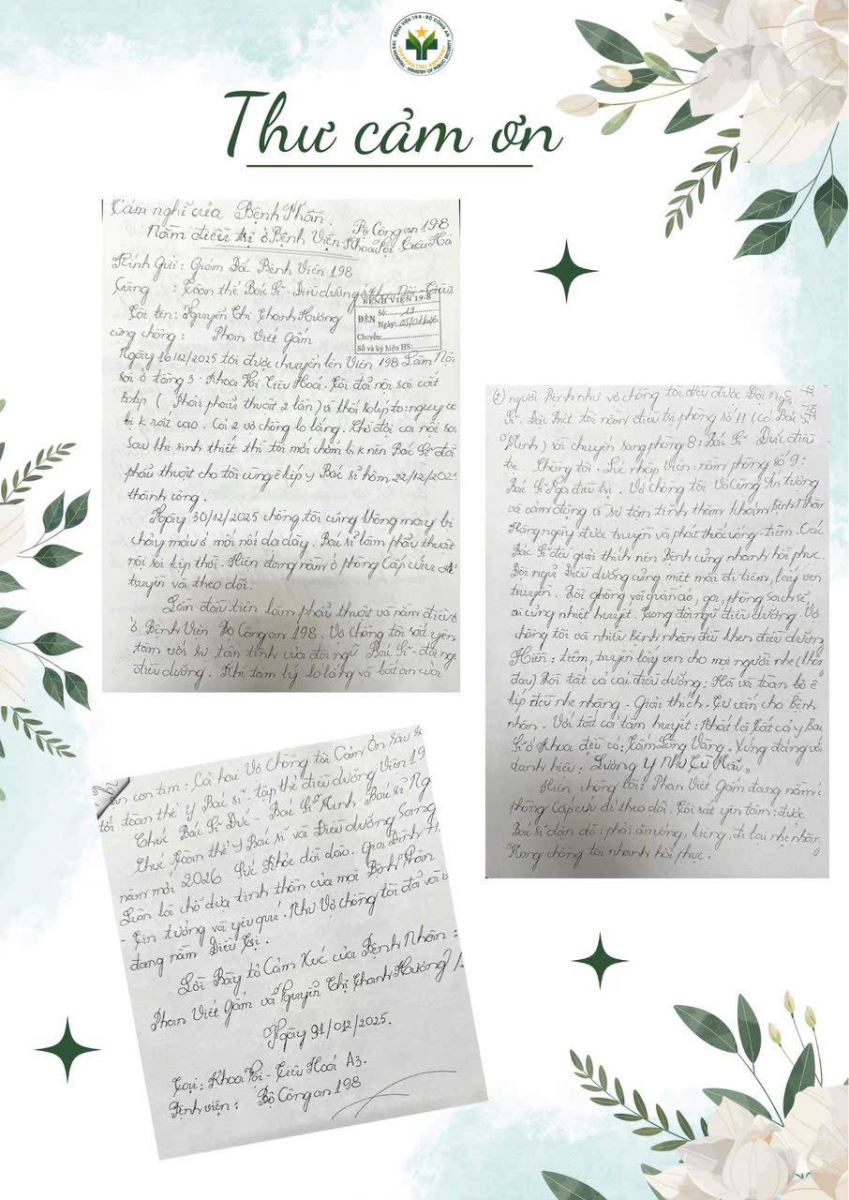 BỆNH VIỆN 19-8 - BỘ CÔNG AN
Thư cảm ơn
Cảm nghĩ của Bệnh Nhân:
Nằm điều trị ở Bệnh Viện Bộ Công an 198
Khoa Nội - Tiêu Hoá
Kính Gửi: Giám Đốc Bệnh Viện 198
Cùng : Toàn thể Bác Sĩ - Điều dưỡng ở Khoa Nội - Tiêu
BỆNH VIỆN 19-8
ĐẾN Số:
Ngày:
Chuyển:
Số và ký hiệu HS:
Tôi tên: Nguyễn Thị Thanh Hương
cùng chồng : Phan Viết Gấm
Ngày 16/12/2025 tôi được chuyển lên Viện 198 Làm Nội
soi ở tầng 3: Khoa Nội Tiêu Hoá. Tôi đã nội soi cắt
Polip ( Phải phẫu thuật 2 lần) vì khối Polip to nguy cơ
bị k rất cao. Cả 2 vợ chồng lo lắng. Chờ đợi ca nội soi
Sau khi sinh thiết thì tôi mới chớm bị k nên Bác Sĩ đã
phẫu thuật cho tôi cùng ê kíp y Bác sĩ hôm 22/12/202
thành công.
Ngày 30/12/2025 chồng tôi cũng không may bị
chảy máu ở mối nối dạ dầy. Bác sĩ làm phẫu thuật
nội soi kịp thời. Hiện đang nằm ở phòng Cấp cứu để
truyền và theo dõi.
Lần đầu tiên làm phẫu thuật và nằm điều t
ở Bệnh Viện Bộ Công an 198. Vợ chồng tôi rất yên
tâm với sự tận tình của đội ngũ Bác Sĩ - đội ngũ
điều dưỡng. Khi tâm lý lo lắng và bất an của
người Bệnh như vợ chồng tôi đều được Đội Ngũ
Sĩ. Đặc biệt tôi nằm điều trị phòng số 11 (Có Bác Sĩ
Minh) rồi chuyển sang phòng 8: Bác Sĩ Đức điều
trị. Chồng tôi. Lúc nhập viện: nằm phòng số 9:
Bác Sĩ Nga điều trị. Vợ chồng tôi Vô Cùng Ấn tượng
và cảm động vì sự tâm tình thăm khám Bệnh Nhân
Hàng ngày được truyền và phát thuốc uống - tiêm. Các
Bác Sĩ đều giải thích nên Bệnh cũng nhanh hồi phục.
Đội ngũ Điều dưỡng cũng miệt mài đi tiêm, lấy ven
truyền. Rồi gường và quần áo, ga, phòng sạch sẽ,
ai cũng nhiệt huyết. Trong đội ngũ điều dưỡng. Vợ
chồng tôi và nhiều Bệnh nhân đều khen điều dưỡng
Hiền: tiêm, truyền lấy ven cho mọi người nhẹ (không
đau) Rồi tất cả các điều dưỡng: Hà và toàn bộ ê
kíp đều nhẹ nhàng. Giải thích. Tư vấn cho Bệnh
nhân. Với tất cả tâm huyết: Nhất là tất cả y Bác
Sĩ ở Khoa đều có: Tấm Lòng Vàng. Xứng đáng với
danh hiệu: Lương y Như Từ Mẫu"
Hiện chồng tôi: Phan Viết Gấm đang nằm ở
phòng Cấp cứu để theo dõi. Tôi rất yên tâm: được
Bác sĩ dặn dò: phải ăn uống, kiêng, đi lại nhẹ nhàng
Mong chồng tôi nhanh hồi phục.
con tim: Cả hai Vợ Chồng tôi Cảm Ơn Sâu sắc
tới toàn thể Y Bác sĩ - tập thể điều dưỡng Viện 19
Chúc Bác Sĩ Đức - Bác Sĩ Minh - Bác Sĩ Ng
Chúc Toàn thể Y Bác sĩ và Điều dưỡng Sang
năm mới 2026 Sức Khỏe dồi dào. Gia Đình H.
Luôn là chỗ dựa tinh thần của mọi Bệnh Nhân
- Tin tưởng và yêu quí. Như Vợ chồng tôi đã và
đang nằm Điều Trị.
Lời Bày tỏ Cảm Xúc của Bệnh Nhân:
Phan Viết Gấm và Nguyễn Thị Thanh Hương
Ngày 31/012/2025.
Tại: Khoa Nội - Tiêu Hoá A3.
Bệnh viện: Bộ Công an 198